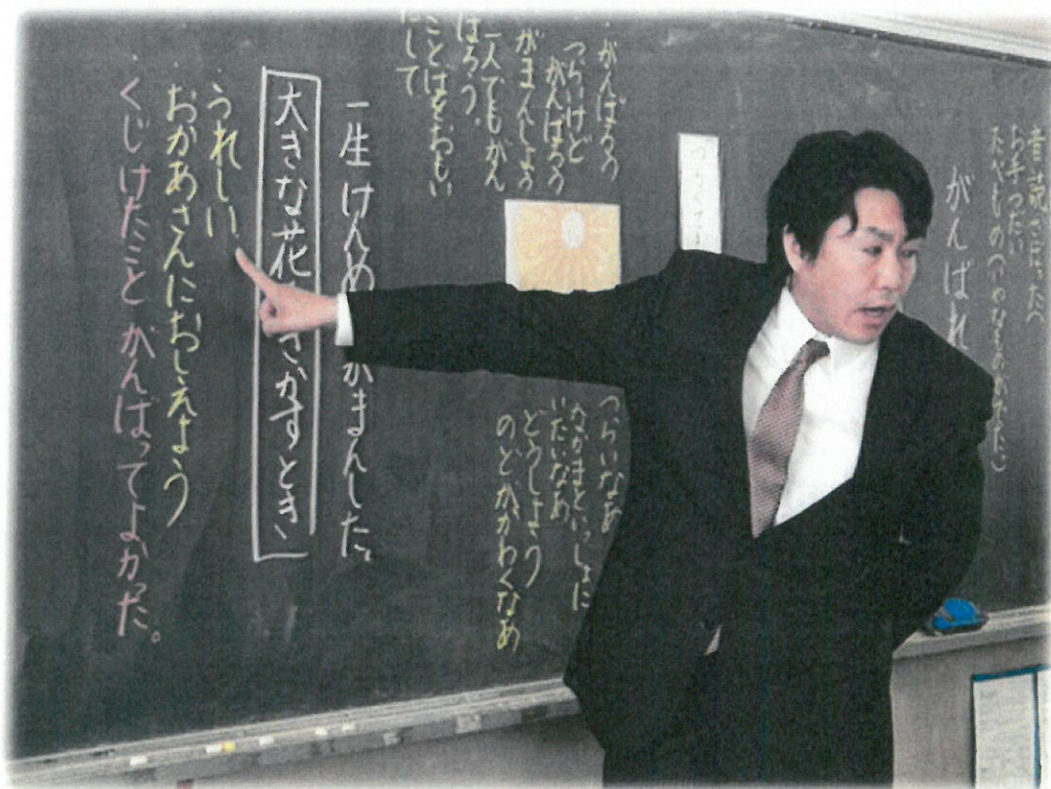 音読
お手つだい
たべもの
がんばれ
・がんばろう
つらいけど
がんばろう
がまんしよう
一人でもがん
ばろう。
ことばをおもい
だして
つらいなあ
なかまといっしょに
いたいなあ
どうしよう
のどがかわくなあ
一生けんめ がまんした。
大きな花 さかすとき、
・うれしい。
・おかあさんにおしえよう
・くじけたことがんばってよかった。